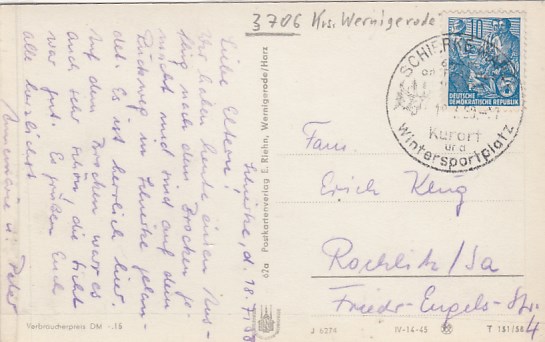 3706 Krs. Wernigerode
10
5
DEUTSCHE
DEMOKRATISCHE REPUBLIK
SCHIERKE
Kurort
und
Wintersportplatz
Schierke, d. 18.7.58
Liebe Eltern!
Wir haben heute einen Aus-
flug nach dem Brocken ge-
macht und sind auf dem
Rückweg in Schierke gelan-
det. Es ist herrlich hier.
Auf dem Brocken war es
auch sehr schön, die Sicht
war gut. Es grüßen Euch
alle herzlichst
Annemarie u. Peter
Verbraucherpreis DM -.15
62a Postkartenverlag E. Riehn, Wernigerode/Harz
Fam.
Erich
Rochlitz/Sa
Friedr.-Engels-Str.
4
J 6374
IV-14-45
T 151/58